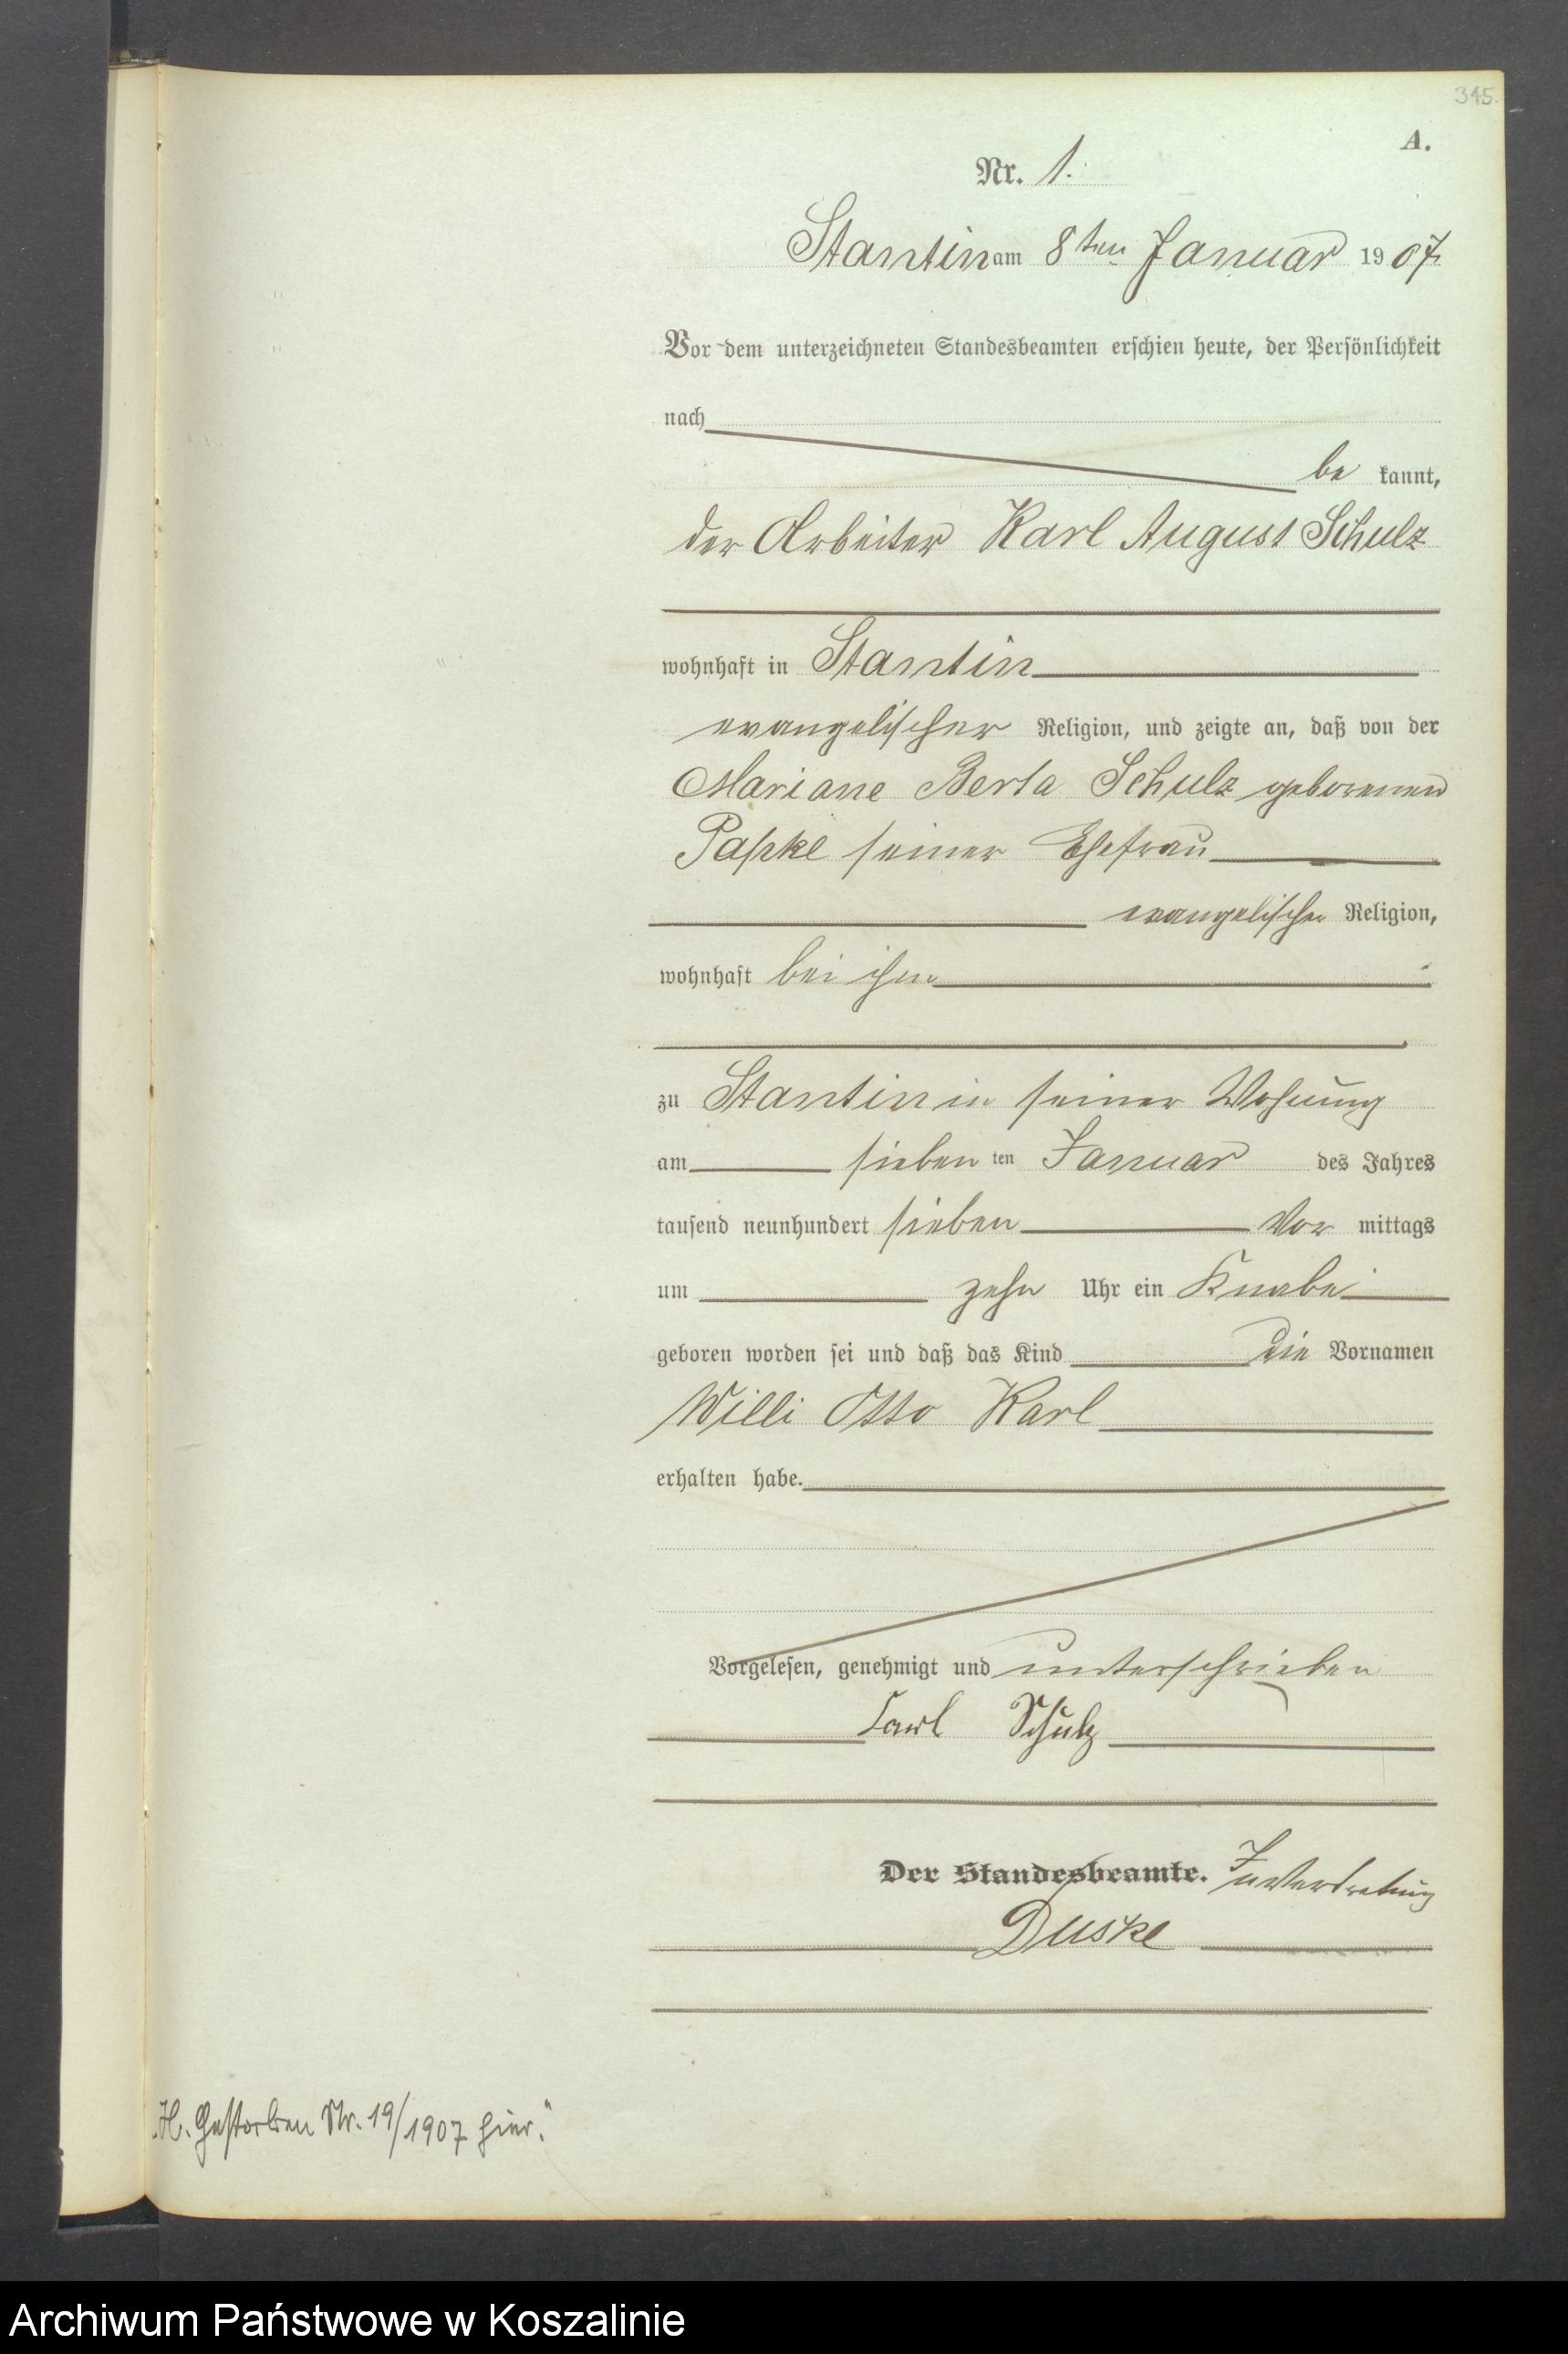 345.
A.
Nr. 1.
Stantin am 8ten Januar 1907.
Vor dem unterzeichneten Standesbeamten erschien heute, der Persönlichkeit
nach
be kannt,
der Arbeiter Karl August Schulz
wohnhaft in Stantin
evangelischer Religion, und zeigte an, daß von der
Mariane Berta Schulz geborenen
Papke seiner Ehefrau
evangelischer Religion,
wohnhaft bei ihm
zu Stantin in seiner Wohnung
am sieben ten Januar des Jahres
tausend neunhundert sieben Vor mittags
um zehn Uhr ein Knabe
geboren worden sei und daß das Kind die Vornamen
Willi Otto Karl
erhalten habe.
Vorgelesen, genehmigt und unterschrieben
Carl Schulz
Der Standesbeamte. In Vertretung
Duske
„H. Gestorben Nr. 19/1907 hier.“
Archiwum Państwowe w Koszalinie